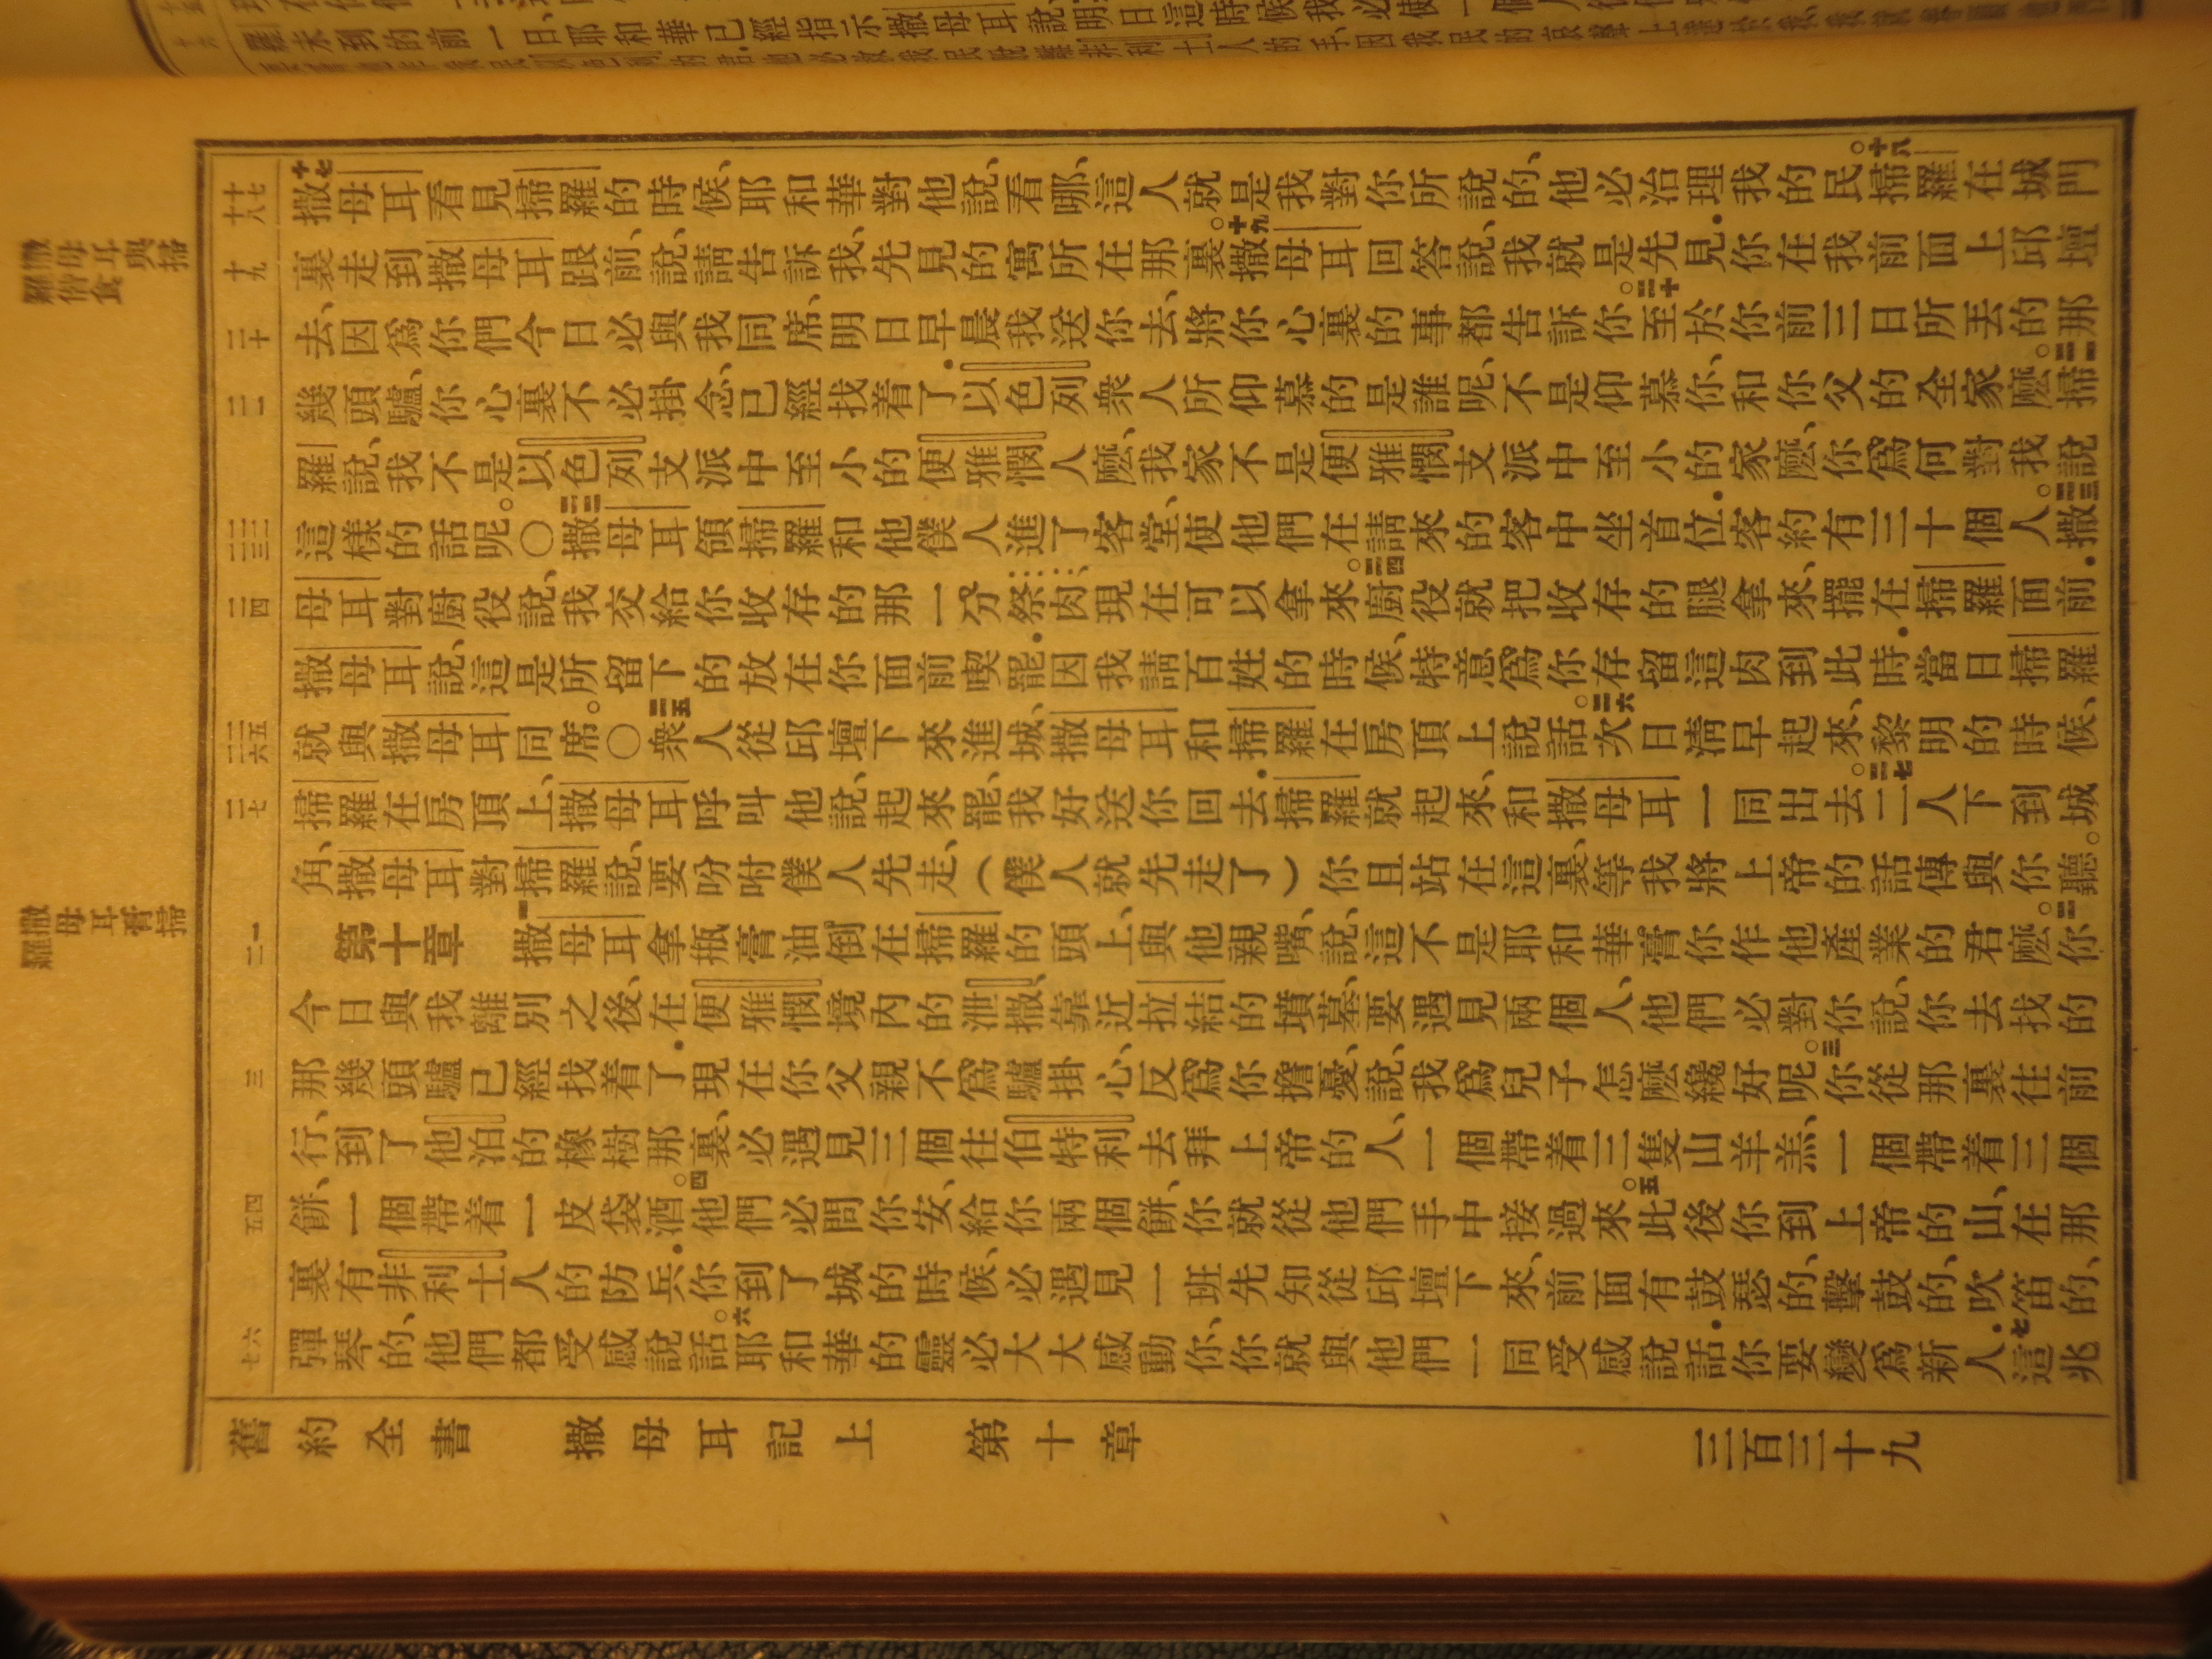 撒母耳看見掃羅的時候、耶和華對他說、看哪、這人就是我對你所說的、他必治理我的民。十八掃羅在城門
裏走到撒母耳跟前、說、請告訴我、先見的寓所在那裏。十九撒母耳回答說、我就是先見、你在我前面上邱壇
去、因爲你們今日必與我同席、明日早晨我送你去、將你心裏的事都告訴你。二十至於你前三日所丟的那
幾頭驢、你心裏不必掛念、已經找着了.以色列衆人所仰慕的是誰呢、不是仰慕你、和你父的全家麽。二一掃
羅說、我不是以色列支派中至小的便雅憫人麽、我家不是便雅憫支派中至小的家麽、你爲何對我說
這樣的話呢。〇二二撒母耳領掃羅和他僕人進了客堂、使他們在請來的客中坐首位.客約有三十個人。二三撒
母耳對廚役說、我交給你收存的那一分祭肉、現在可以拿來。二四廚役就把收存的腿拿來、擺在掃羅面前.
撒母耳說、這是所留下的放在你面前喫罷.因我請百姓的時候、特意爲你存留這肉到此時.當日掃羅
就與撒母耳同席。〇二五衆人從邱壇下來進城、撒母耳和掃羅在房頂上說話。二六次日淸早起來、黎明的時候、
掃羅在房頂上、撒母耳呼叫他說、起來罷、我好送你回去.掃羅就起來、和撒母耳一同出去。二七二人下到城
角、撒母耳對掃羅說、要吩咐僕人先走、(僕人就先走了)你且站在這裏、等我將上帝的話傳與你聽。
第十章 一撒母耳拿瓶膏油倒在掃羅的頭上、與他親嘴、說、這不是耶和華膏你作他產業的君麽。二你
今日與我離別之後、在便雅憫境內的泄撒、靠近拉結的墳墓、要遇見兩個人、他們必對你說、你去找的
那幾頭驢已經找着了.現在你父親不爲驢掛心、反爲你擔憂、說、我爲兒子怎麽纔好呢。三你從那裏往前
行、到了他泊的橡樹那裏、必遇見三個往伯特利去拜上帝的人、一個帶着三隻山羊羔、一個帶着三個
餅、一個帶着一皮袋酒。四他們必問你安、給你兩個餅、你就從他們手中接過來。五此後你到上帝的山、在那
裏有非利士人的防兵.你到了城的時候、必遇見一班先知從邱壇下來、前面有鼓瑟的、擊鼓的、吹笛的、
彈琴的、他們都受感說話。六耶和華的靈必大大感動你、你就與他們一同受感說話.你要變爲新人.七這兆
舊約全書 撒母耳記上 第十章 三百三十九
撒母耳與掃羅偕食
撒母耳膏掃羅